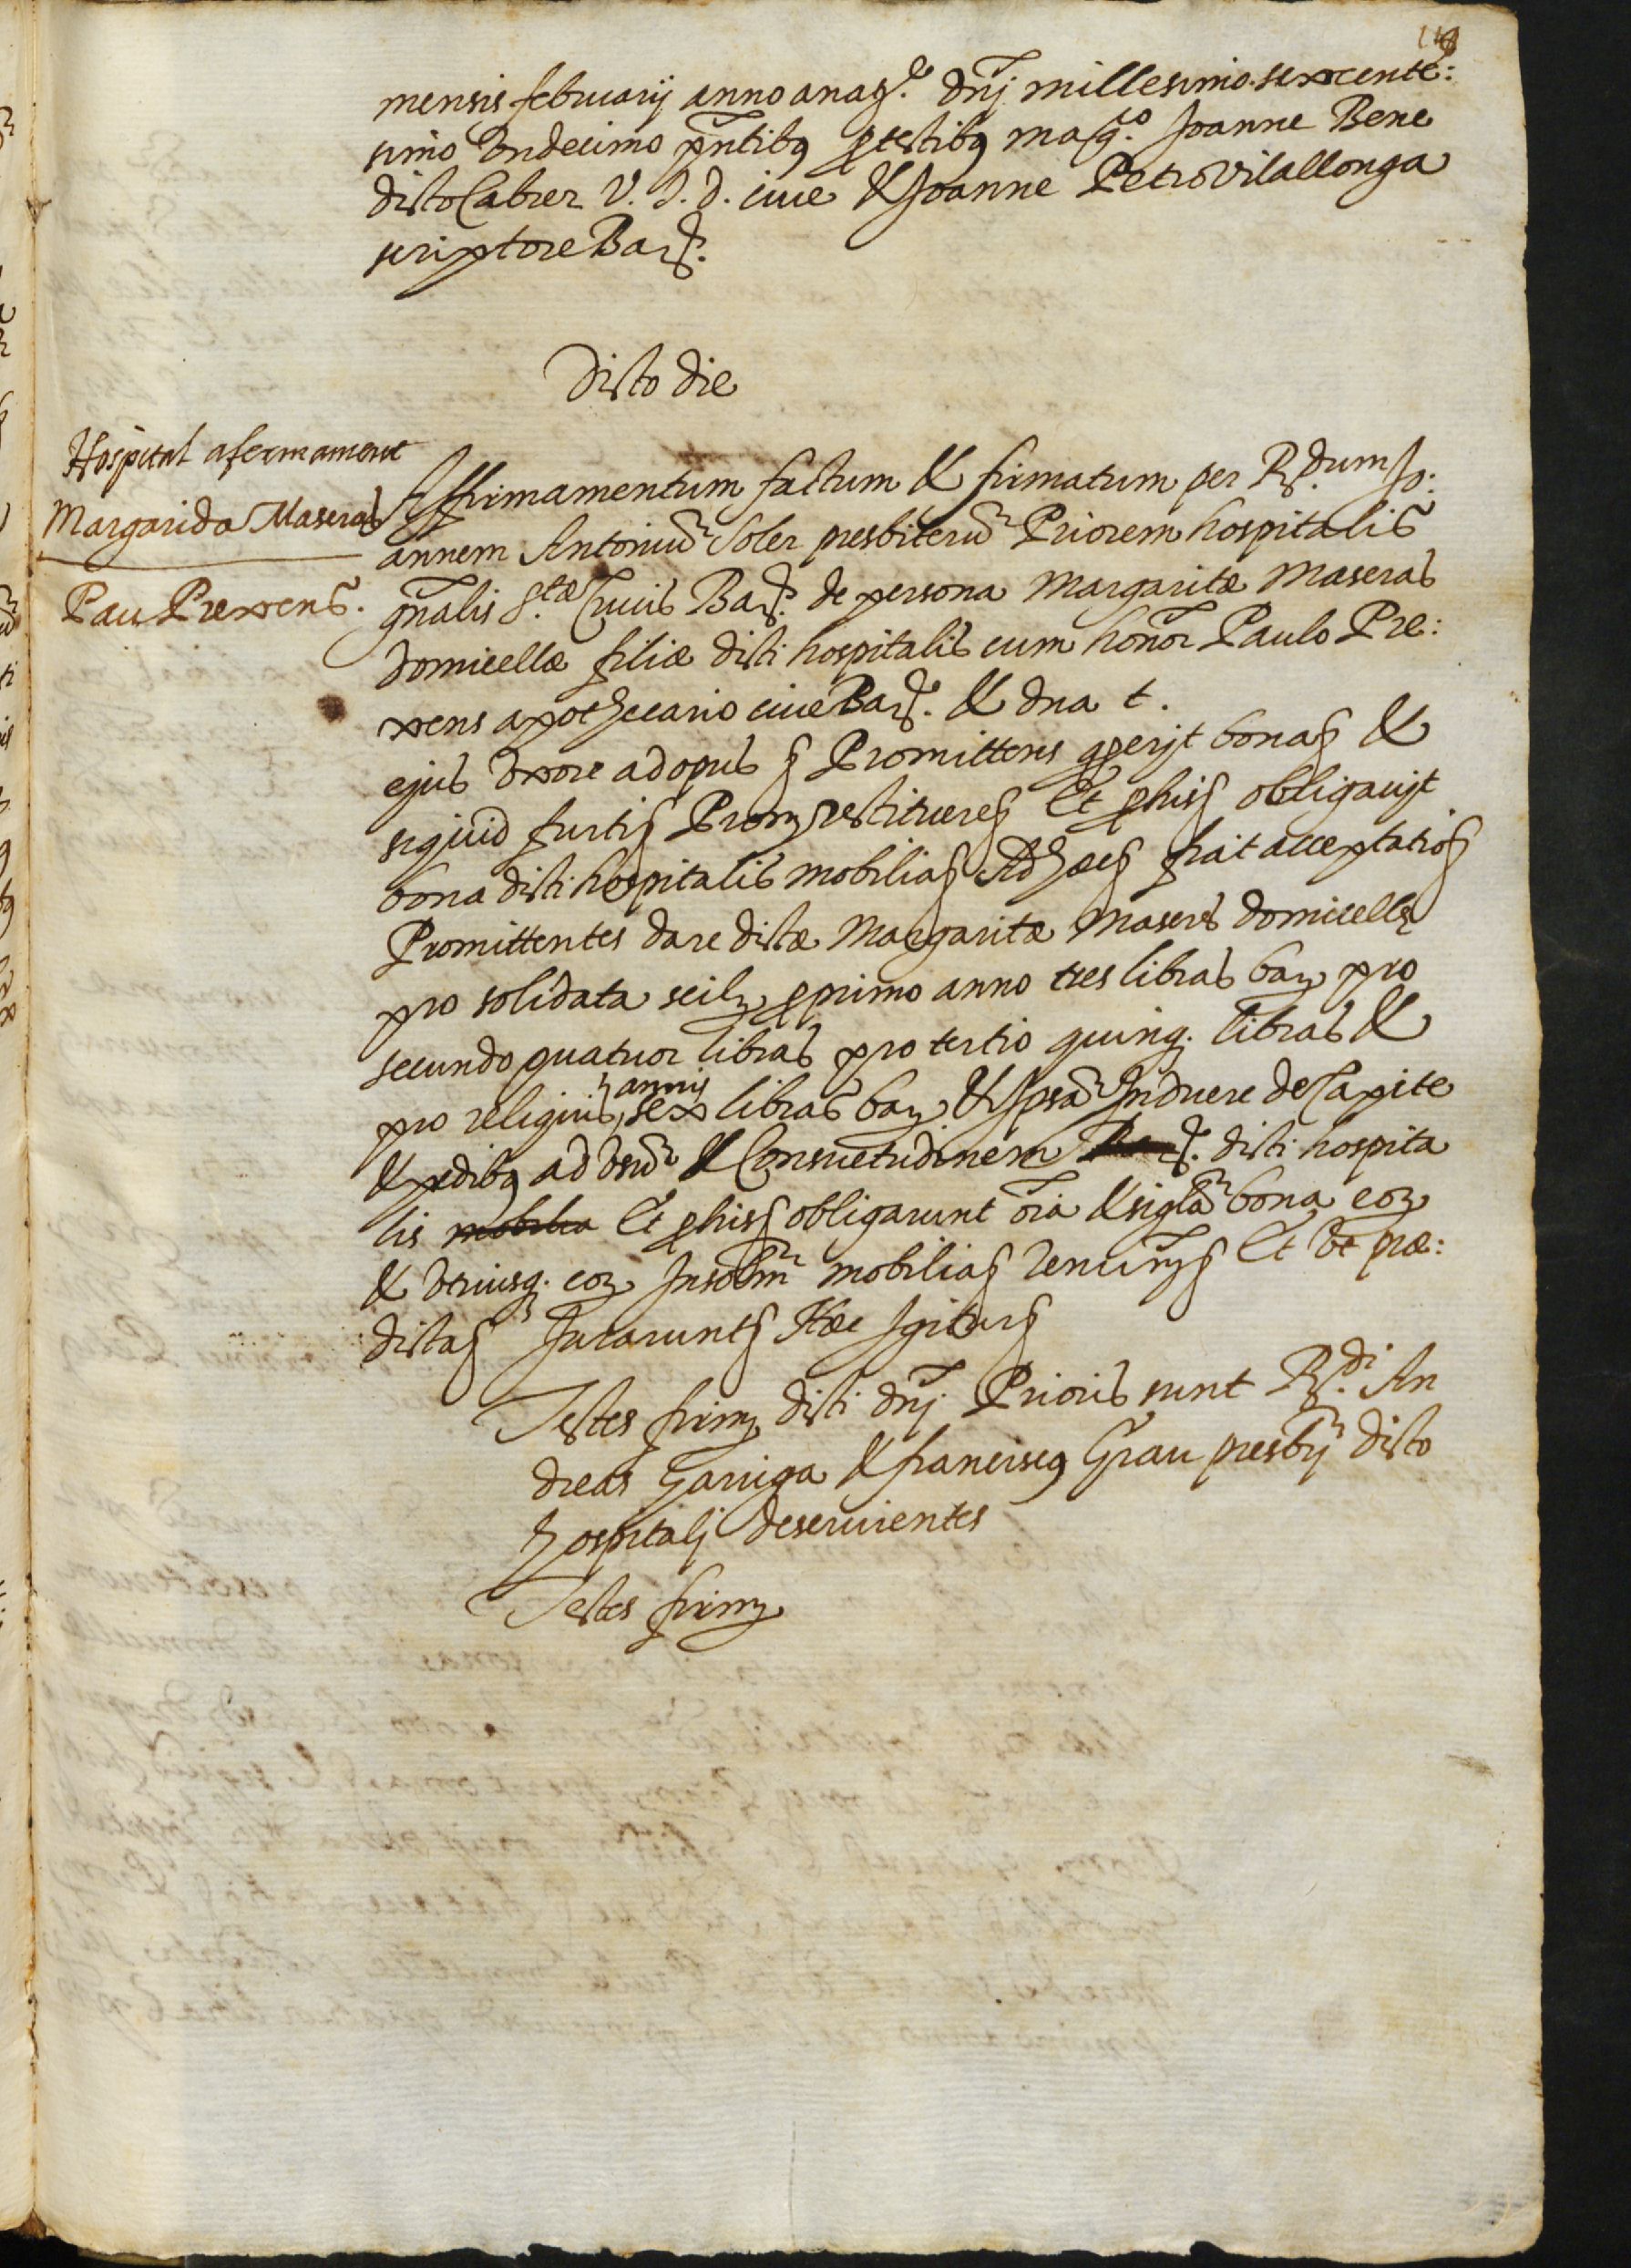 mensis februarij anno a nat. dnj millesimo. sexcente:
simo Vndecimo pntibq p testibq mag.co Joanne Bene
dicto Cabrer V. J. d. ciue & Joanne Petro Vilallonga
scriptore Bar.

Dicto die

Hospital afermament
Margarida Maseras
Pau Prexens.

Affirmamentum factum & firmatum per R.dum Jo:
annem Antoniu Soler presbiteru Priorem hospitalis
gnalis S.tae Crucis Bar. de persona Margaritæ Maseras
domicellæ filiæ dicti hospitalis cum honor Paulo Pre:
xens apothecario ciue Bar. & dna t.
ejus Vxore ad opus Promittens operijt bona &
siquid furti Prom restituere Et p his obligauit
bona dicti hospitalis mobilia Ad hæc fiat acceptatio
Promittentes dare dictæ Margaritæ Maseres domicellę
pro solidata scilz p primo anno tres libras bar pro
secundo quatuor libras pro tertio quinq. libras &
pro reliquis annis sex libras bar & Ipsa Induere de Capite
& pedibq ad Vsu & Consuetudinem dicti hospita
lis mobilia Et p his obligarunt oia & sigla bona eor
& Vtriusq. eor Insolm mobilia renun Et Vt præ:
dicta Jurarunt Hæc Igitur

Testes firm dicti dnj Prioris sunt R.di An
dreas Garriga & franciscq Grau presbri dicto
hospitalj deseruientes
Testes firm